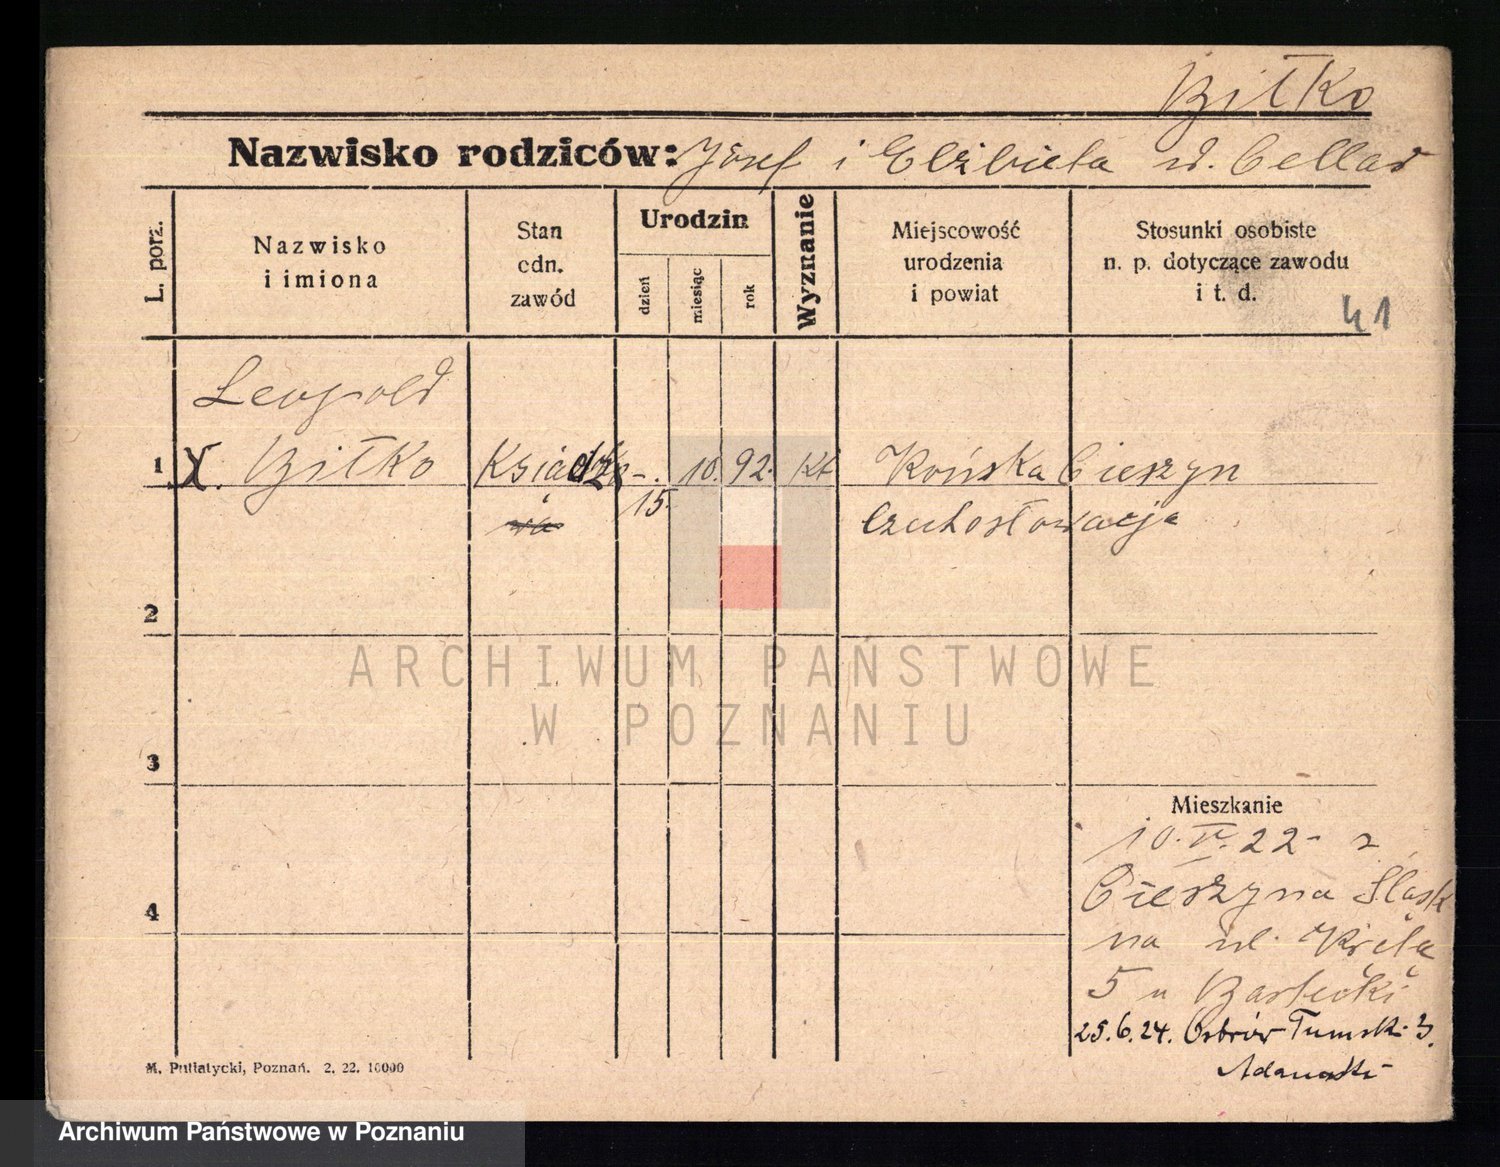 Biłko
Nazwisko rodziców: Józef i Elżbieta d. Cellar
L. porz.
Nazwisko
i imiona
Stan
cdn.
zawód
Urodzin
dzień
miesiąc
rok
Wyznanie
Miejscowość
urodzenia
i powiat
Stosunki osobiste
n. p. dotyczące zawodu
i t. d.
41
Leopold
1 X. Biłko Ksiądz -. 10. 92. kt Końska Cieszyn
15. Czechosłowacja
2
ARCHIWUM PAŃSTWOWE
W POZNANIU
3
Mieszkanie
10. IV. 22 - z
4 Cieszyna Śląsk
na ul. Kręta
5 u
25.6.24. Ostrów Tumsk. 3.
Adamski
M. Putiatycki, Poznań. 2. 22. 10000
Archiwum Państwowe w Poznaniu